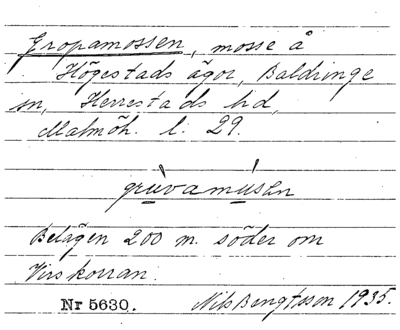 Gropamossen, mosse å
Högestads ägor, Baldringe
sn, Herrestads hd,
Malmöh. l. 29.
gruvamusen
Belägen 200 m. söder om
Virskorran.
Nr 5630. Nils Bengtsson 1935.